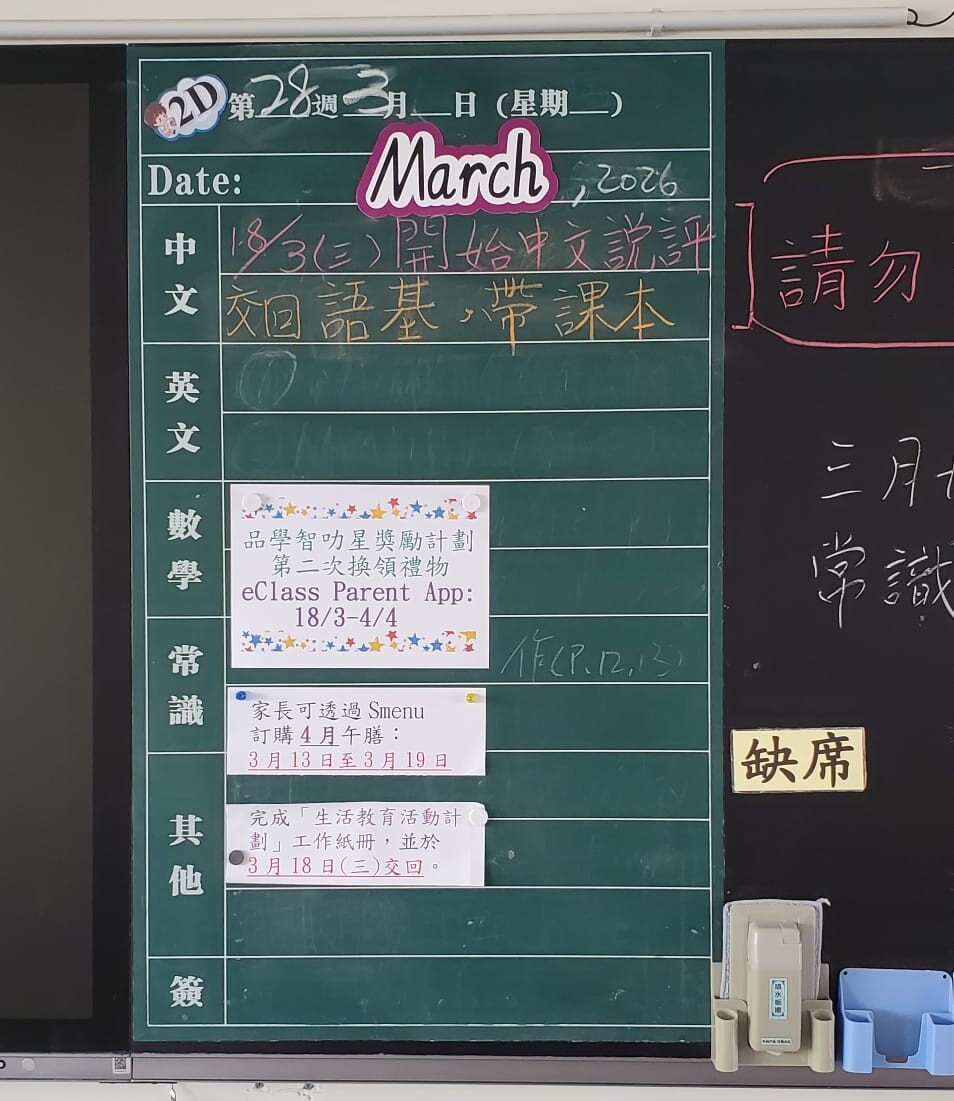 2D 第28週 3月__日 (星期__)
Date: March, 2026
中文
18/3(三)開始中文說評
交回語基、帶課本
英文
數學
品學智叻星獎勵計劃
第二次換領禮物
eClass Parent App:
18/3-4/4
常識
作(P.12, 13)
家長可透過 Smenu
訂購 4 月午膳：
3 月 13 日至 3 月 19 日
其他
完成「生活教育活動計
劃」工作紙冊，並於
3 月 18 日(三)交回。
簽
請勿
三月
常識
缺席